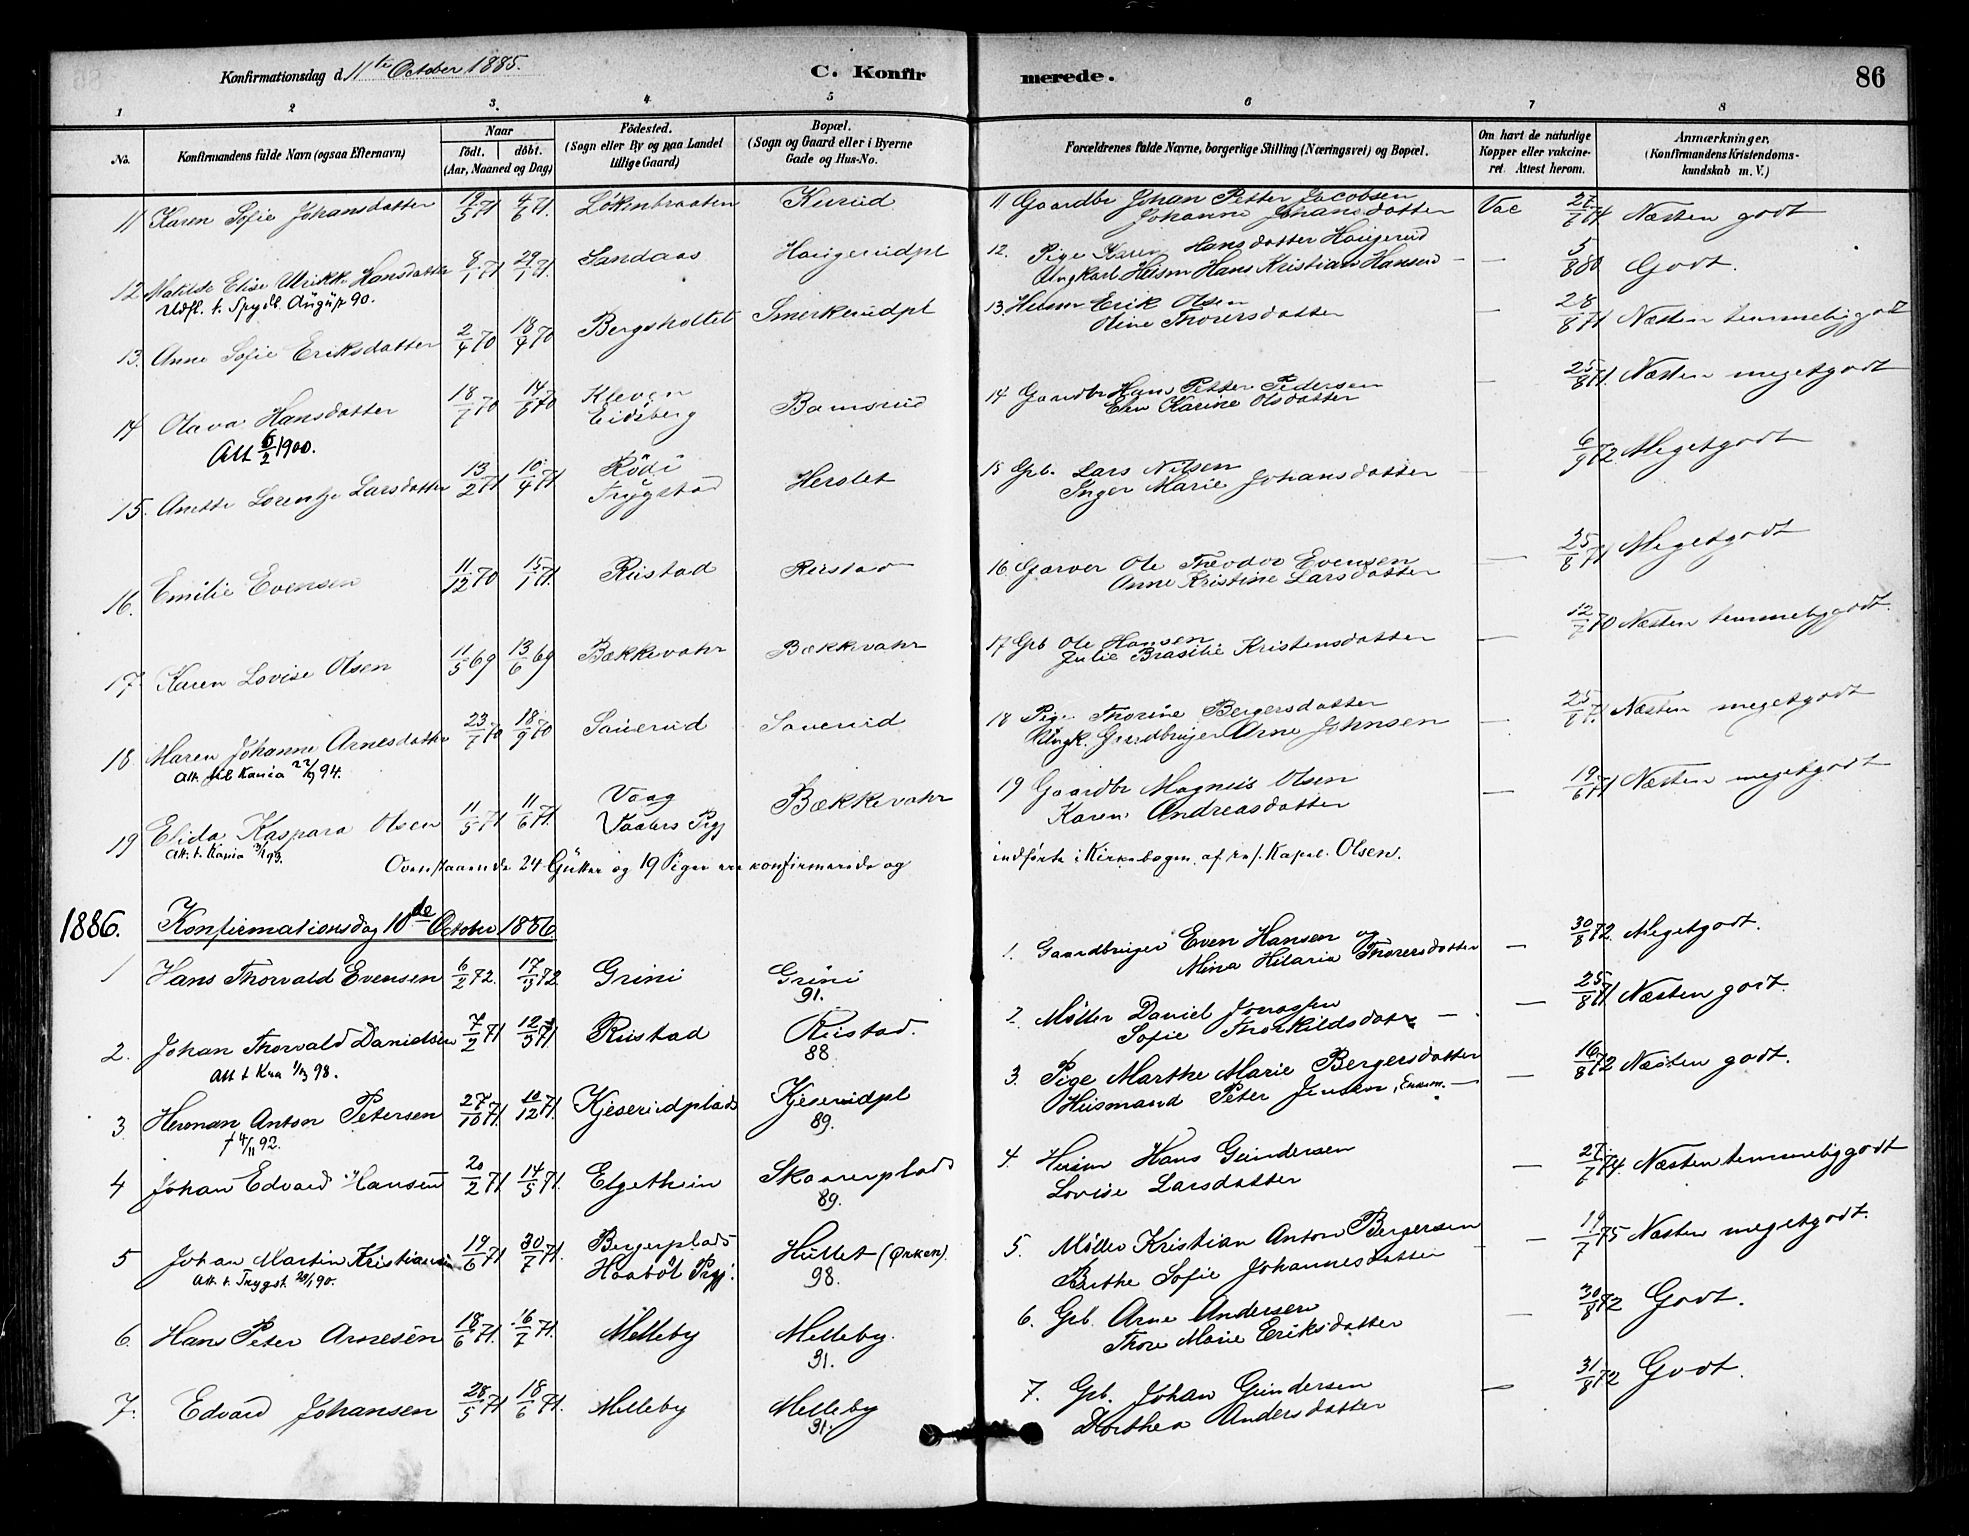 Konfirmationsdag d. 11te October 1885.
C. Konfirmerede.
86
1 2 3. 4 5 6 7 8
No.
Konfirmandens fulde Navn (ogsaa Efternavn)
Naar
födt. döbt.
(Aar, Maaned og Dag)
Födested.
(Sogn eller By og paa Landet
tillige Gaard)
Bopæl.
(Sogn og Gaard eller i Byerne
Gade og Hus-No.
Forældrenes fulde Navne, borgerlige Stilling (Næringsvei) og Bopæl.
Om havt de naturlige
Kopper eller vakcine-
ret. Attest herom.
Anmærkninger,
(Konfirmandens Kristendoms-
kundskab m. V.)
11 Karen Sofie Johansdatter 17/5 71 4/6 71. Lökenbraaten Kurud 11 Gaardbr Johan Petter Jacobsen
Johanne Johansdatter Vac Næsten godt
12 Matilde Elise Ulrikke Hansdatter 8/1 71 29/1 71. Sandaas Haugerudpl 12. Pige Karen Hansdatter Haugerud
Ungkarl Husm Hans Kristian Hansen — — 5/8 80 Godt.
Udfl. t. Spydb. 90.
13. Anne Sofie Eriksdatter 2/4 70 18/4 70 Bergsholtet Smerkerudpl 13. Husm Erik Olsen
Oline Thorersdatter — 28/8 71 Næsten temmelig godt
14 Olava Hansdatter 18/7 70 14/8 70 Kleven
Eidsberg Bamsrud 14 Gaardbr Hans Petter Pedersen
Elen Karine Olsdatter — 25/8 71. Næsten megetgodt
Att 6/2 1900.
15. Anette Lorentze Larsdatter 13/2 71 10/4 71 Rödi
Trygstad Herslet 15 Gbr. Lars Nilsen
Inger Marie Johansdatter — 6/9 72. Megetgodt
16. Emilie Evensen 11/12 70 15/1 71. Rustad Rustad 16 Garver Ole Theodor Evensen
Anne Kristine Larsdatter — 25/8 71 Megetgodt
17. Karen Lovise Olsen 11/5 69 13/6 69 Bækkevahr Bækkevahr 17 Gbr Ole Hansen
Julie Brasilie Kristensdatter — 12/7 70 Næsten temmeliggodt.
18 Maren Johanne Arnesdatter 23/7 70 18/9 70 Saürud Saurud 18 Pige Thorine Bergersdatter
Ungk. Gaardbruger Arne Johnsen — Næsten megetgodt
Att. til Kania 22/9 94.
19 Elida Kaspara Olsen 11/5 71 11/6 71. Vaag
Vaalers Prgj Bækkevahr 19 Gaardbr Magnus Olsen
Karen Andreasdatter — 19/6 71 Næsten megetgodt
Att. t. Kania 3/1 93.
Ovenstaaende 24 Gutter og 19 Piger ere konfirmerede og indførte i Kirkebogen af res. Kapel. Olsen.
1886. Konfirmationsdag 10de October 1886
1 Hans Thorvald Evensen 6/2 72. 17/3 72 Grini Grini
91. 1. Gaardbruger Even Hansen og
Mina Hilaria Thorersdatter — 30/8 72. Megetgodt.
2. Johan Thorvald Danielsen 7/2 71 12/3 71. Rustad Rustad.
88 2. Møller Daniel Jonassen
Sofie Thorkildsdatr — — 25/8 71 Næsten godt.
Att t Kra 98.
3. Herman Anton Petersen 27/10 71. 10/12 71. Kjeserudplads Kjeserudpl
89. 3. Pige Marthe Marie Bergersdatter
Husmand Peter Jensen, Enkem. — — 16/8 72 Næsten godt.
† 4/11 92.
4 Johan Edvard Hansen 20/2 71 14/5 71. Elgethein Skaarerplads
89. 4. Husm Hans Gundersen
Lovise Larsdatter — 27/6 74. Næsten temmeliggodt
5 Johan Martin Kristiansen 19/6 71 30/7 71. Bergerplads
Haaböl Prgj. Hullet (Ørken).
98. 5. Møller Kristian Anton Bergersen
Berthe Sofie Johannesdatter — — 19/7 75 Næsten megetgodt.
Att. t. Trygst. 28/1 90.
6. Hans Peter Arnesen 18/6 71. 16/7 71. Melleby Melleby.
91. 6. Gbr. Arne Andersen
Thore Marie Eriksdatter — 30/8 72 Godt.
7. Edvard Johansen 28/5 71 18/6 71. Melleby Melleby
91. 7. Gbr. Johan Gundersen
Dorthea Andersdatter — 31/8 72 Godt.